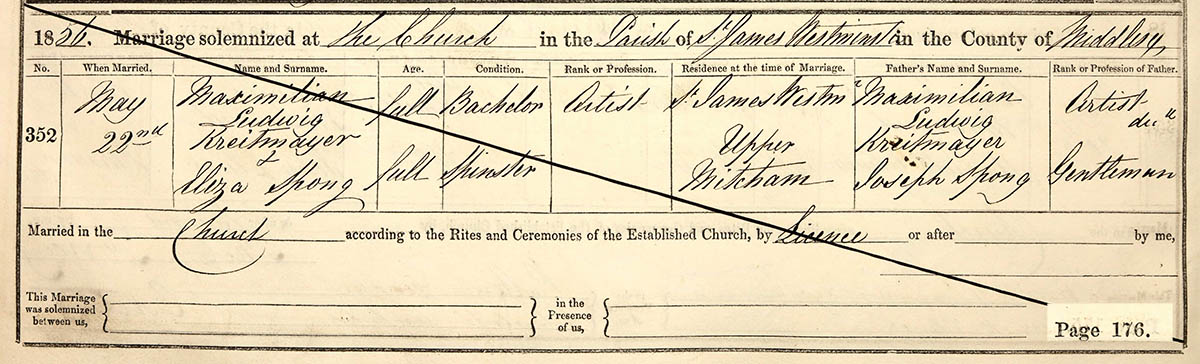 1856. Marriage solemnized at the Church in the Parish of St James Westminstr in the County of Middlesex
No. When Married. Name and Surname. Age. Condition. Rank or Profession. Residence at the time of Marriage. Father's Name and Surname. Rank or Profession of Father.
352
May
22nd
Maximilian
Ludwig
Kreitmayer
&
Eliza Spong
full
full
Bachelor
Spinster
Artist
St James Westmr
Upper
Mitcham
Maximilian
Ludwig
Kreitmayer
Joseph Spong
Artist
decd
Gentleman
Married in the Church according to the Rites and Ceremonies of the Established Church, by Licence or after by me,
This Marriage
was solemnized
between us,
in the
Presence
of us,
Page 176.